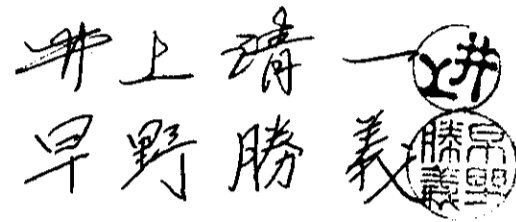 井上靖一
井上
早野勝義
早野勝義